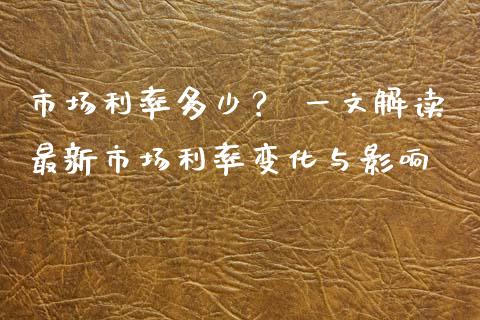 市场利率多少？ 一文解读
最新市场利率变化与影响